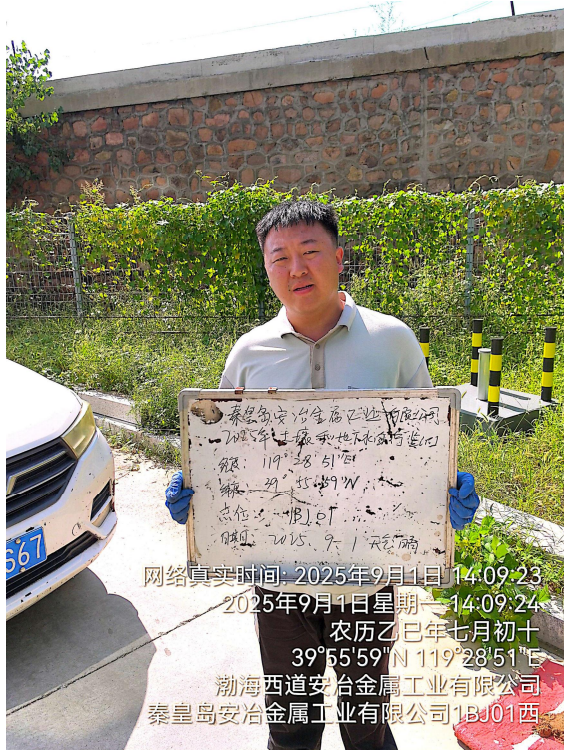 秦皇岛安冶金属工业有限公司
2025年土壤和地下水自行监测
经度: 119° 28′ 51″E
纬度: 39° 55′ 59″N
点位: 1BJ01
日期: 2025.9.1 天气:晴
S67
网络真实时间: 2025年9月1日 14:09:23
2025年9月1日星期一 14:09:24
农历乙巳年七月初十
39°55'59"N 119°28'51"E
渤海西道安冶金属工业有限公司
秦皇岛安冶金属工业有限公司1BJ01西